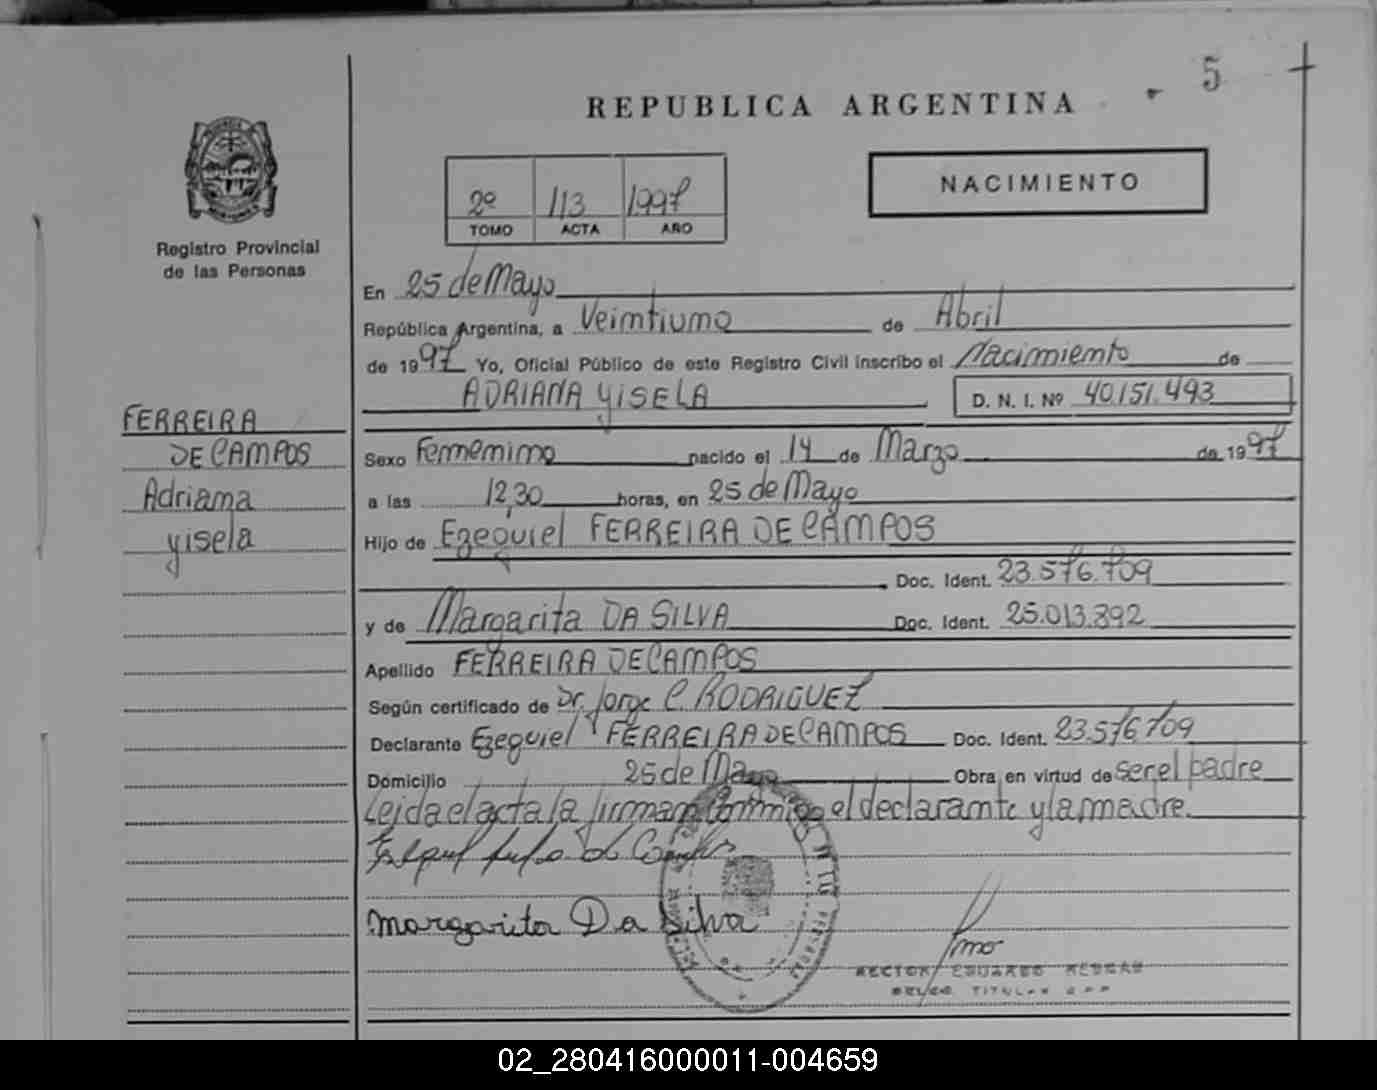 5
REPUBLICA ARGENTINA
NACIMIENTO
2º 113 1997
TOMO ACTA AÑO
Registro Provincial
de las Personas
En 25 de Mayo
República Argentina, a Veintiuno de Abril
de 1997 Yo, Oficial Público de este Registro Civil inscribo el Nacimiento de
ADRIANA YISELA D. N. I. Nº 40.151.493
FERREIRA
DE CAMPOS
Adriana
Yisela
Sexo Femenino nacido el 14 de Marzo de 1997
a las 12,30 horas, en 25 de Mayo
Hijo de Ezequiel FERREIRA DE CAMPOS
Doc. Ident. 23.576.709
y de Margarita DA SILVA Doc. Ident. 25.013.892
Apellido FERREIRA DE CAMPOS
Según certificado de Dr. Jorge C. RODRIGUEZ
Declarante Ezequiel FERREIRA DE CAMPOS Doc. Ident. 23.576.709
Domicilio 25 de Mayo Obra en virtud de ser el padre
Leida el acta la firman conmigo el declarante y la madre.
Margarita Da Silva
EDUARDO
TITULAR
02_280416000011-004659